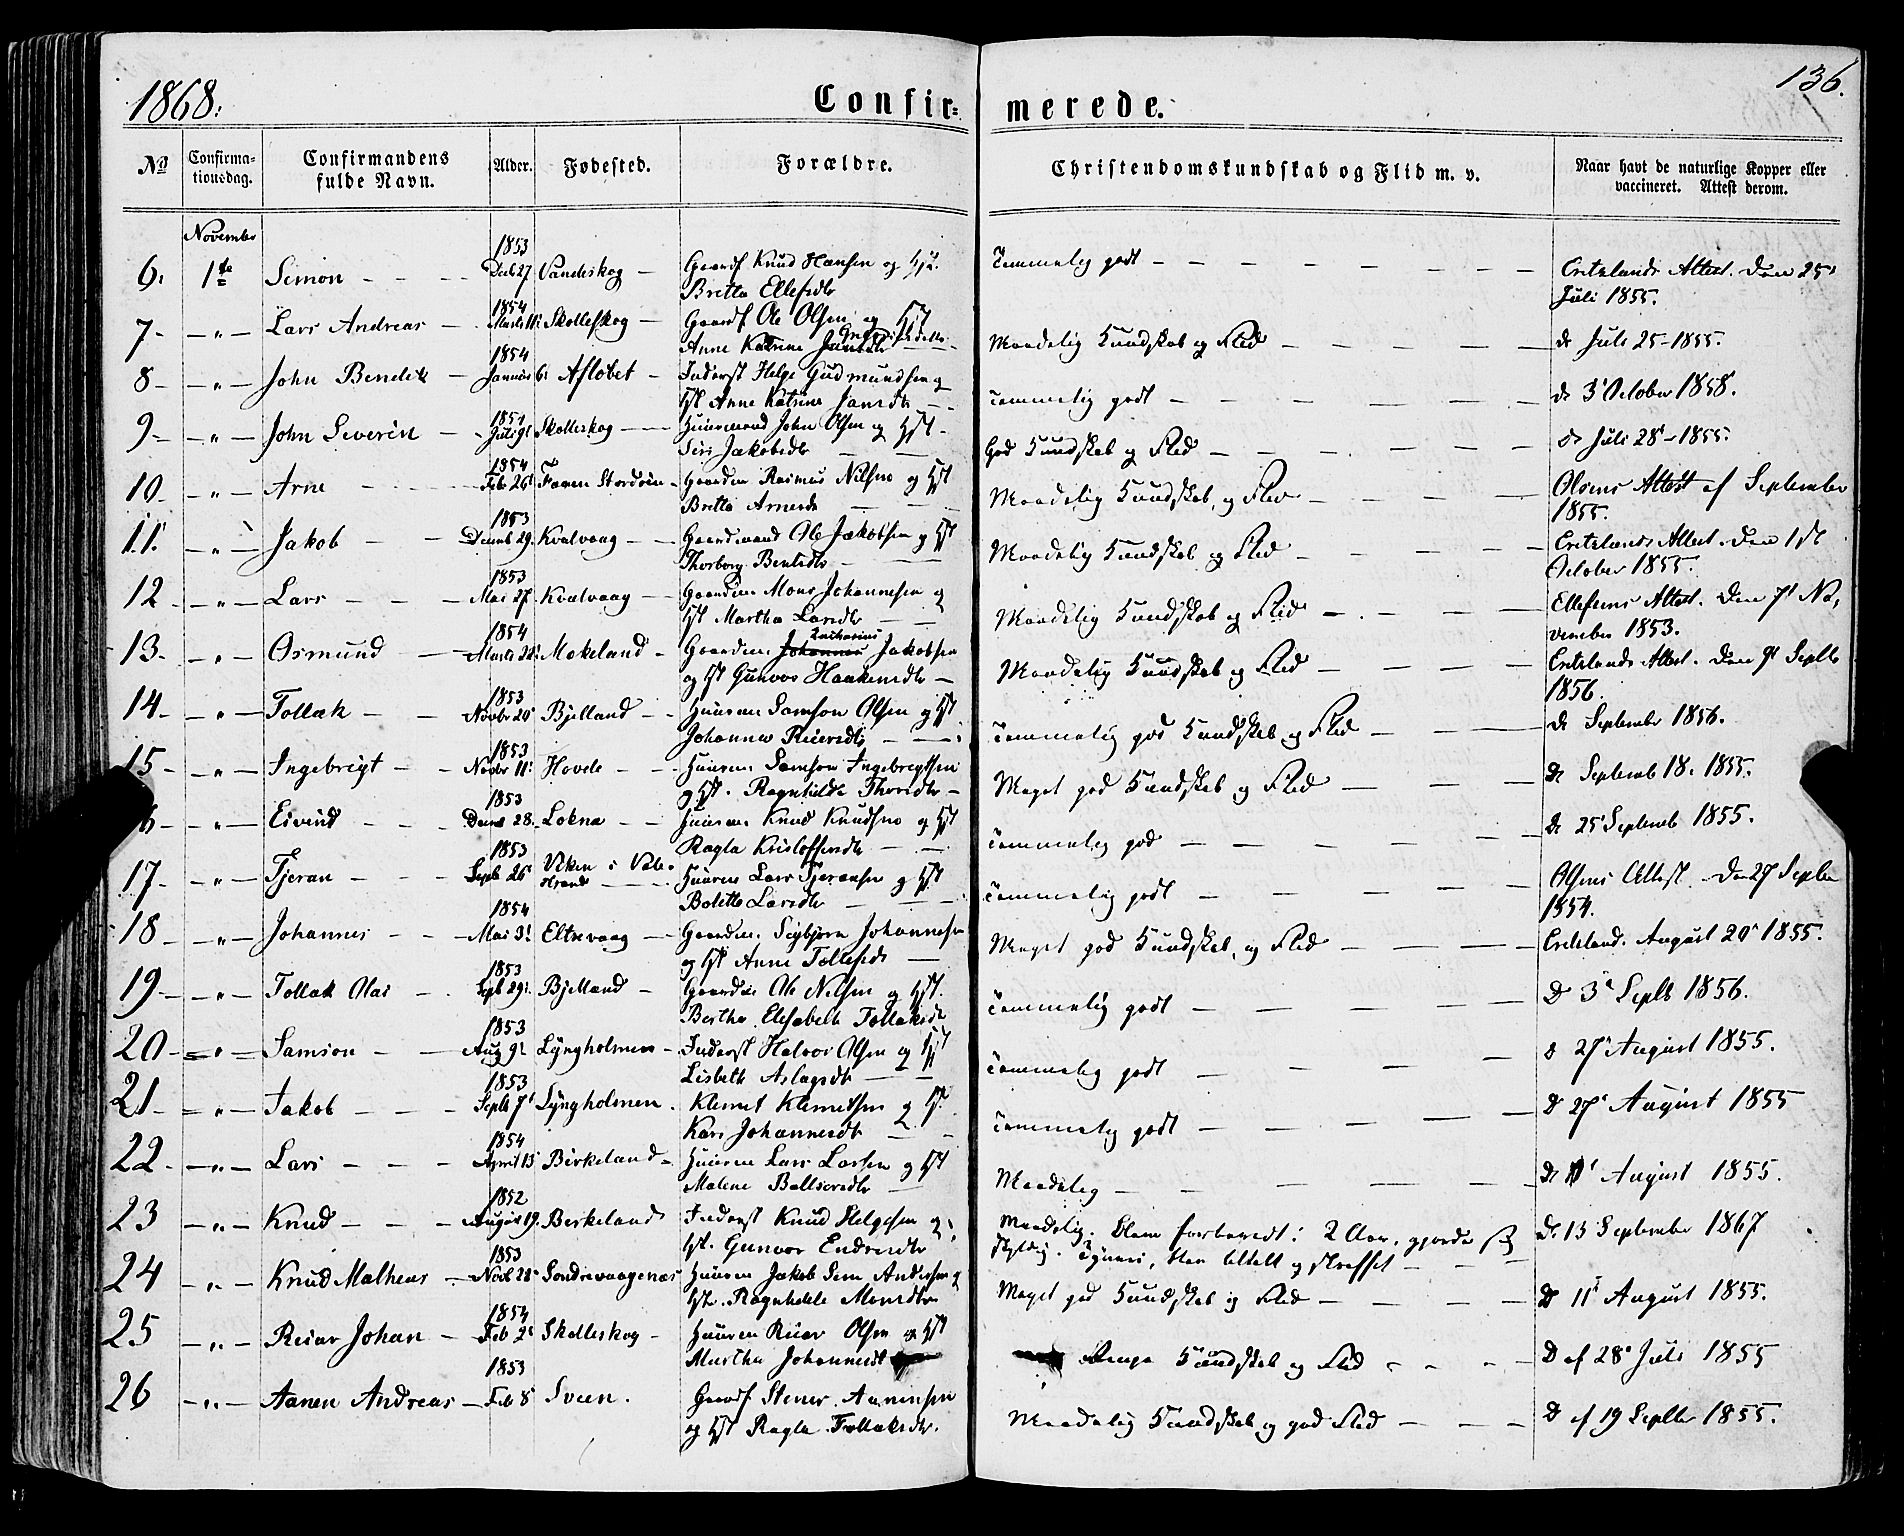 1868.
Confir= merede.
136.
No
Confirma-
tionsdag.
Confirmandens
fulde Navn.
Alder.
Fødested.
Forældre.
Christendomskundskab og Flid m. v.
Naar havt de naturlige Kopper eller
vaccineret. Attest derom.
November
1853
6. 1ste Simon Decb 27 Vandeskog Gaardf Knud Hansen og Hju. Temmelig godt Attest. Den 25
Britta Ellefsdtr Juli 1855.
1854
7 - " - Lars Andreas Marts 11 Skolleskog Gaardf Ole Olsen og Hst Maadelig Kundskab og Flid do Juli 25 - 1855.
Anne Katrine
1854
8 - " - John Bendik Januar 6 Afløbet Inderst Helge Gudmundsen og Temmelig godt do 3 October 1858.
Hst Anne Katrine Jansdtr
1854
9 - " - John Severin Juli 9 Skolleskog Huusmand John Olsen og Hst God Kundskab og Flid do Juli 28 - 1855.
Siri Jakobsdtr
1854
10 - " - Arne Feb 26 Stordøen Gaardm Rasmus Nilsen og Hst Maadelig Kundskab, og Flid Olsens Attest af September
Britta Arnesdtr 1855.
1853
11. - " - Jakob Decemb 29. Kvalvaag Gaardmand Ole Jakobsen og Hst Maadelig Kundskab og Flid Attest. Den 1st
Thorborg Bentsdtr October 1855.
1853
12 - " - Lars Mai 27. Kvalvaag Gaardm Mons Johannesen og Maadelig Kundskab og Flid Ellefsens Attest. Den 7 No-
Hst Martha Larsdtr vember 1853.
1854 Zacharias
13 - " - Osmund Marts 22 Mokeland Gaardm. Johannes Jakobsen Maadelig Kundskab og Flid Attest. Den 9 Septb
og Hst Gunvor Haakensdtr 1856.
1853
14 - " - Tollak Novbr 20 Bjelland Huusm Samson Olsen og Hst Temmelig god Kundskab og Flid do September 1856.
Johanna Reiersdtr
1853
15 - " - Ingebrigt Novbr 11 Hovde Huusm Samson Ingebregtsen Meget god Kundskab og Flid do Septemb 18. 1855.
og Hst. Ragnhilda Thorsdtr
1853
6 - " - Eivind Decemb 28. Lokna Huusm Knud Knudsen og Hst Temmelig god do 25 Septemb 1855.
Ragla Kristoffersdtr
1853
17 - " - Tjeran Septb 26 Viken i Vale- Huusm Lars Tjeransen og Hst Temmelig godt Olsens Attest. Den 27 Septbr
strand Bolette Larsdtr 1854.
1854
18 - " - Johannes Mai 3 Eltrevaag Gaardm. Seybjørn Johannesen Meget god Kundskab, og Flid August 20 1855.
og Hst Anne Tollefsdtr
1853
19 - " - Tollak Olai Sept 29. Bjelland Gaardm Ole Nilsen og Hst. Temmelig godt do 3 Septb 1856.
Bertha Elisabeth Tollaksdtr
1853
20 - " - Samson Aug 9 Lyngholmen Inderst Halvor Olsen og Hst Temmelig godt do 27 August 1855.
Lisbeth Aslagsdtr
1853
21 - " - Jakob Septb 7 Lyngholmen Klemet Klemetsen og Hst. Temmelig godt do 27 August 1855
Kari Johannesdtr
1854
22 - " - Lars April 15 Birkeland Huusm Lars Larsen og Hst Maadelig August 1855.
Malene Baltsersdtr
1852
23 - " - Knud August 19. Berkeland Inderst Knud Helgesen og Maadelig. 2 Aar, gjorde sig do 13 September 1867
Hst. Gunvor Endresdtr skyldig i Tyveri, blev tiltalt og straffet
1853
24 - " - Knud Matheus Novb 28 Søndrevaagenæs Huusm Jakob Sem Andersen og Meget god Kundskab og Flid do 11 August 1855.
Hst. Ragnhilde Monsdtr
1854
25 - " - Reiar Johan Feb 2 Skolleskog Huusm Reiar Olsen og Hst Kundskab og Flid do af 28 Juli 1855
Martha Johannesdt
1853
26 - " - Aanen Andreas Feb 8 Sveen. Gaardf Stener Aanensen Maadelig Kundskab og god Flid do af 19 Septbr 1855.
og Hst Ragla Tollaksdtr.